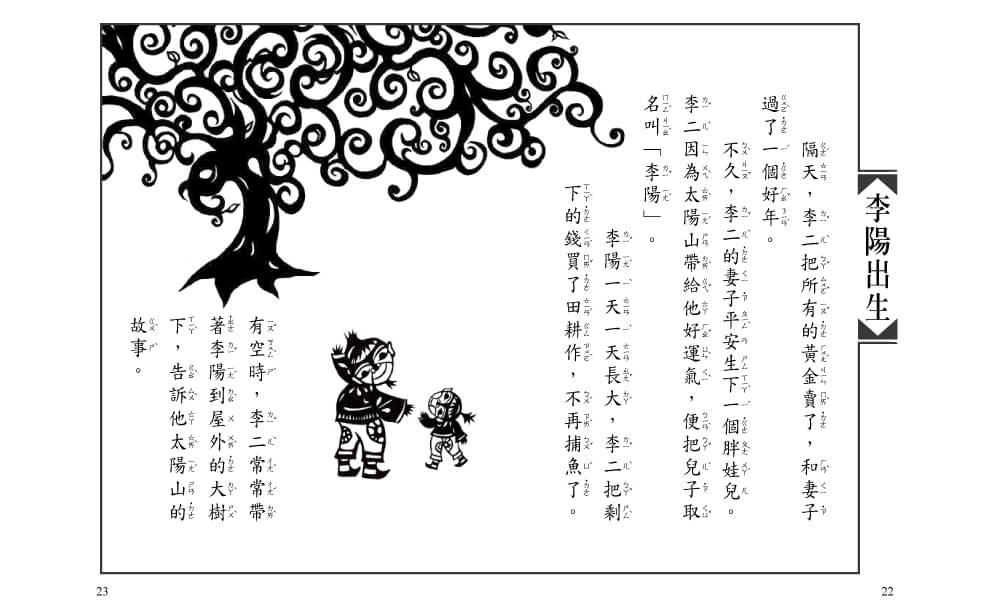 李陽出生
隔天，李二把所有的黃金賣了，和妻子
過了一個好年。
不久，李二的妻子平安生下一個胖娃兒。
李二因為太陽山帶給他好運氣，便把兒子取
名叫「李陽」。
李陽一天一天長大，李二把剩
下的錢買了田耕作，不再捕魚了。
有空時，李二常常帶
著李陽到屋外的大樹
下，告訴他太陽山的
故事。
22
23